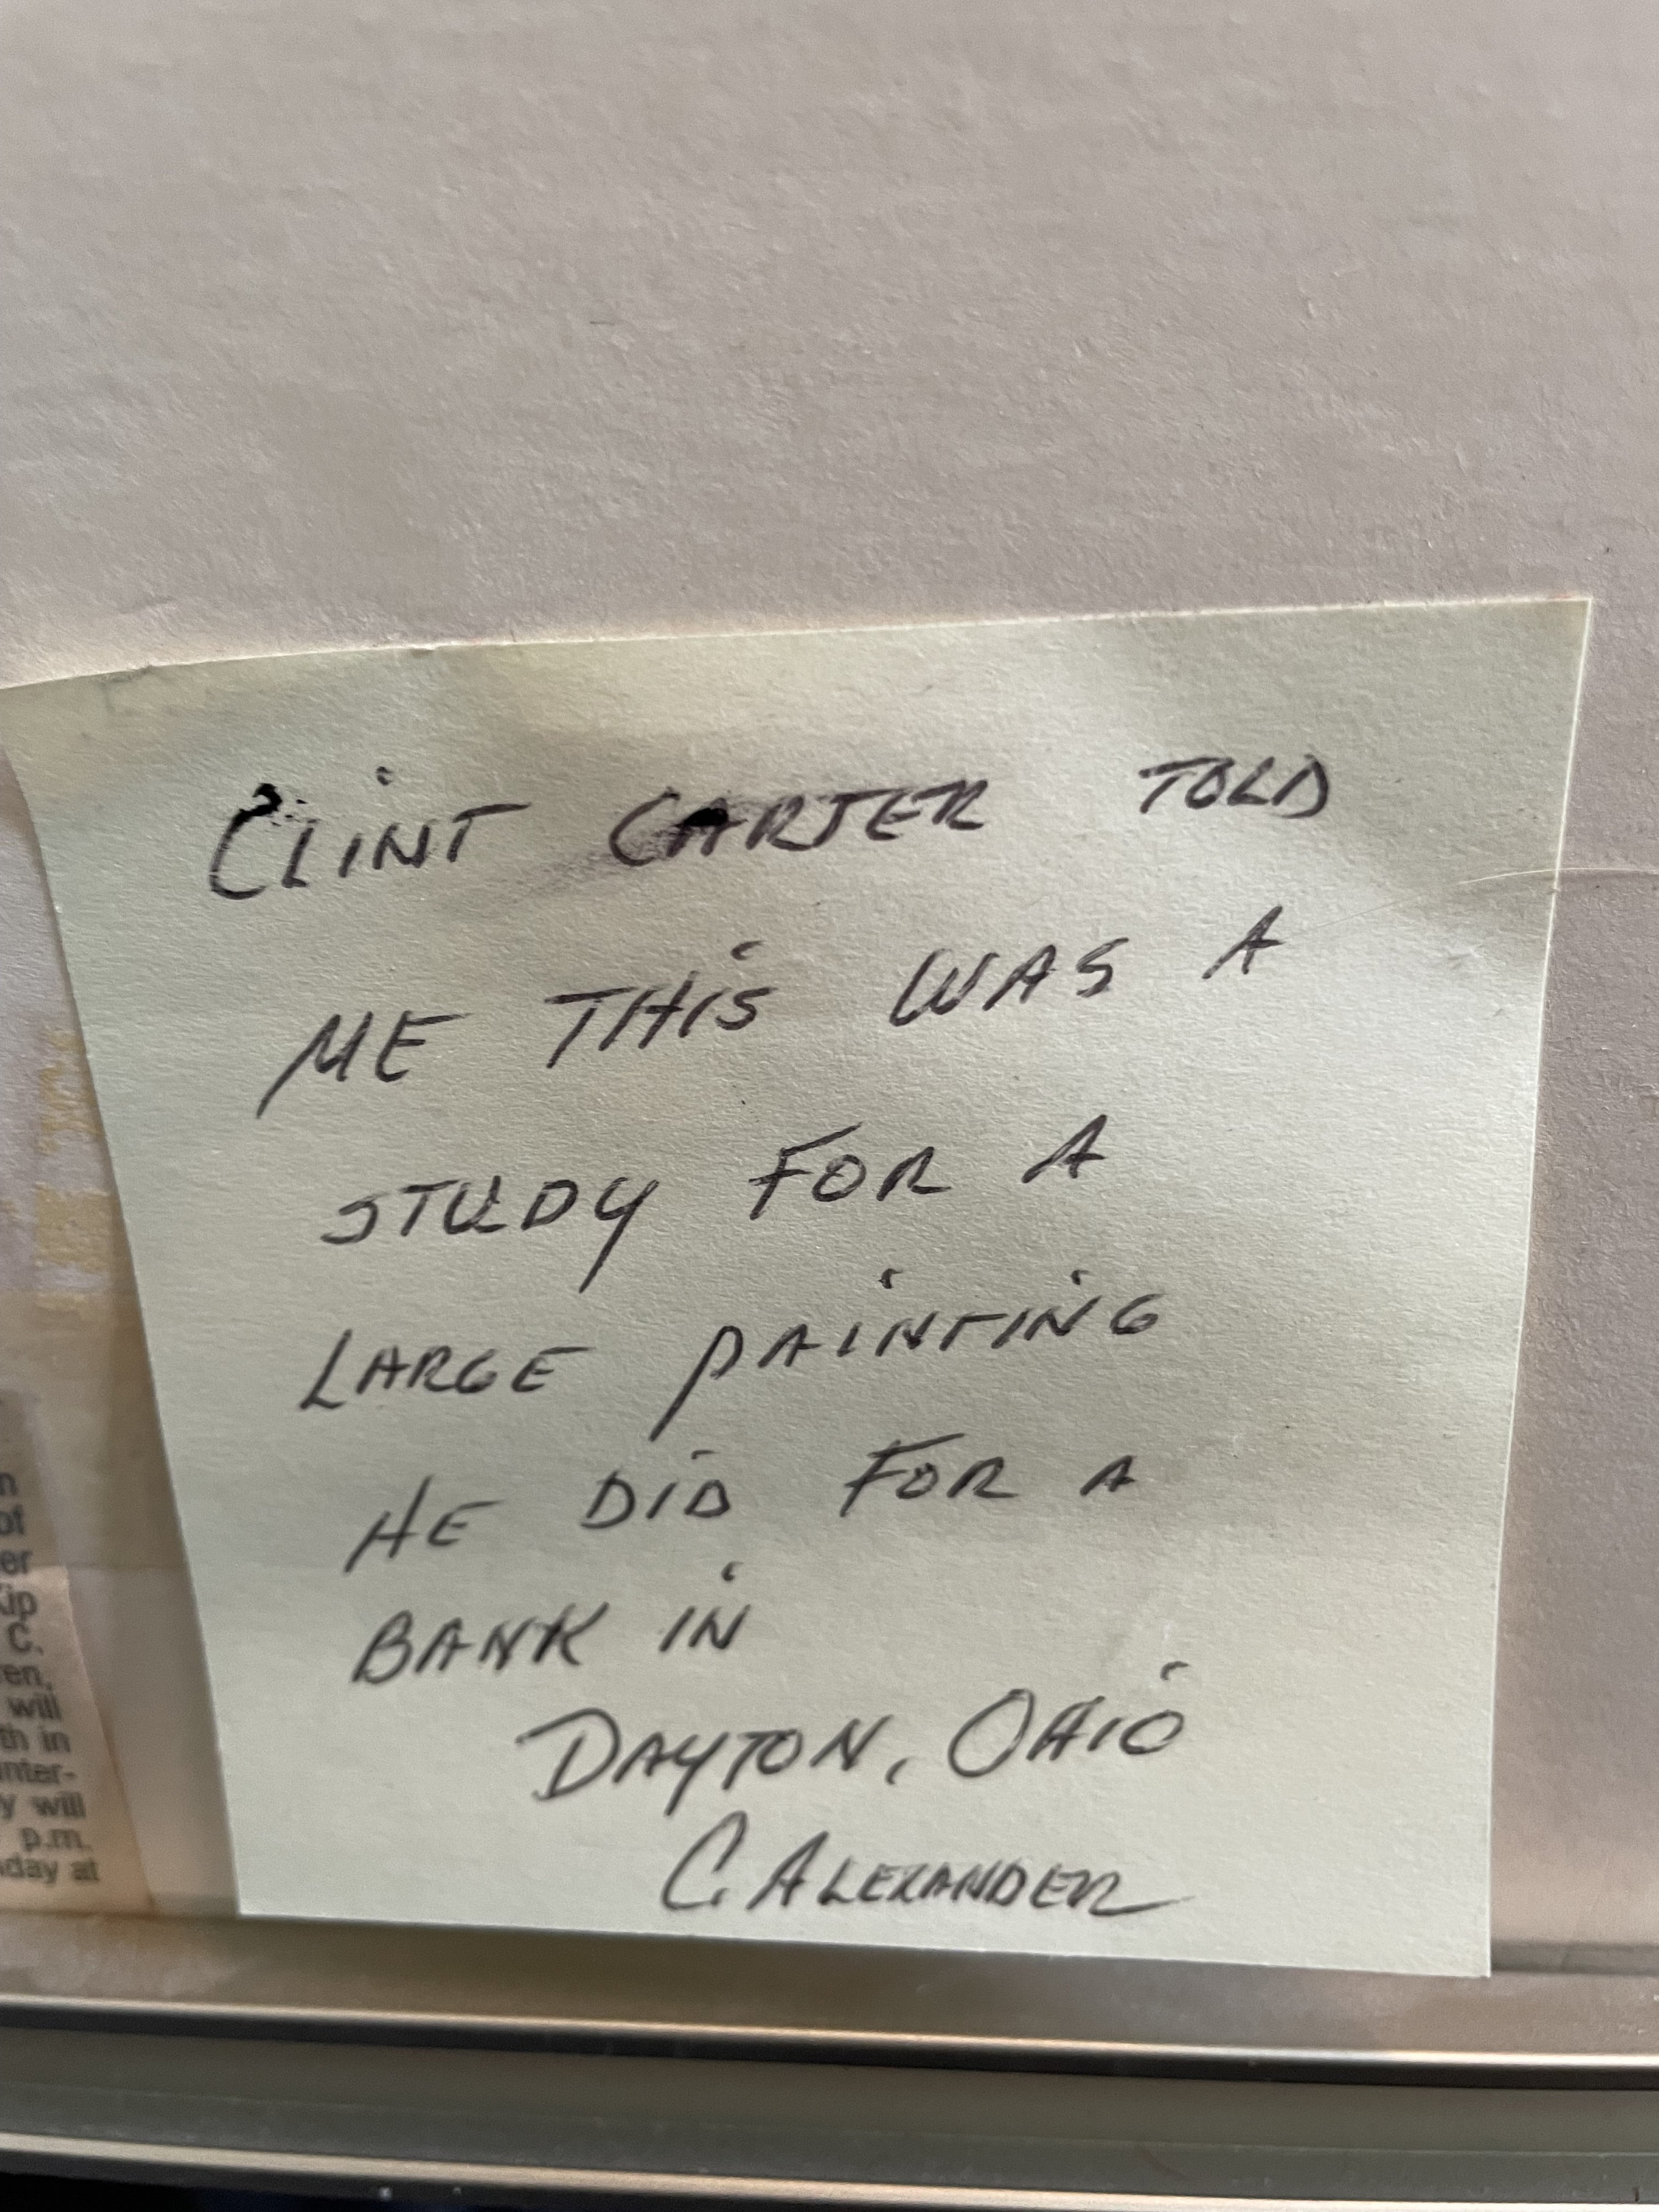 CLINT CARTER TOLD
ME THIS WAS A
STUDY FOR A
LARGE PAINTING
HE DID FOR A
BANK IN
DAYTON, OHIO
C. ALEXANDER
n
of
er
Kip
C.
en,
will
th in
nter-
y will
p.m.
day at